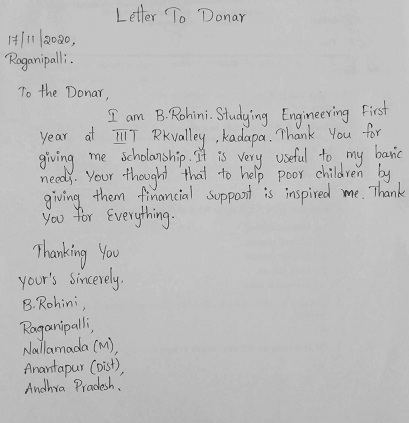 Letter To Donar
17/11/2020,
Raganipalli.
To the Donar,
I am B.Rohini. Studying Engineering First
Year at IIIT Rkvalley, kadapa. Thank You for
giving me scholarship. It is very useful to my basic
needs. Your thought that to help poor children by
giving them financial support is inspired me. Thank
You for Everything.
Thanking You
Your's Sincerely.
B.Rohini,
Raganipalli,
Nallamada (M),
Anantapur (Dist),
Andhra Pradesh.